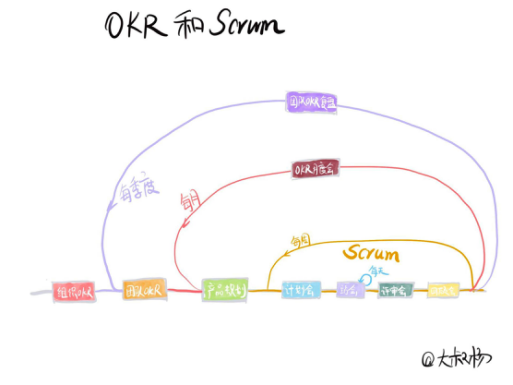 OKR 和 Scrum
团队OKR复盘
每季度
OKR月度会
每月
每周
Scrum
每天
组织OKR
团队OKR
产品规划
计划会
站会
评审会
@大叔杨